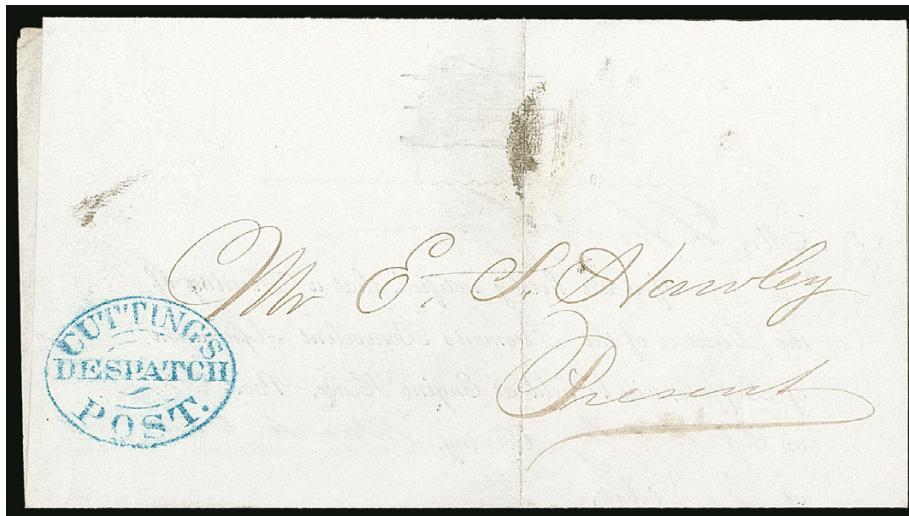 Mr E. S. Hawley
Present
CUTTING'S
DESPATCH
POST.